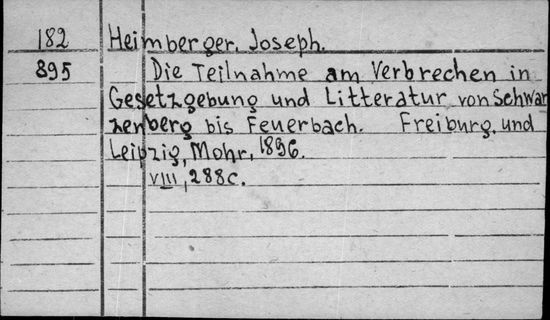 182 Heimberger, Joseph.
895 Die Teilnahme am Verbrechen in
Gesetzgebung und Litteratur von Schwar
zenberg bis Feuerbach. Freiburg, und
Leipzig, Mohr, 1896.
VIII, 288c.